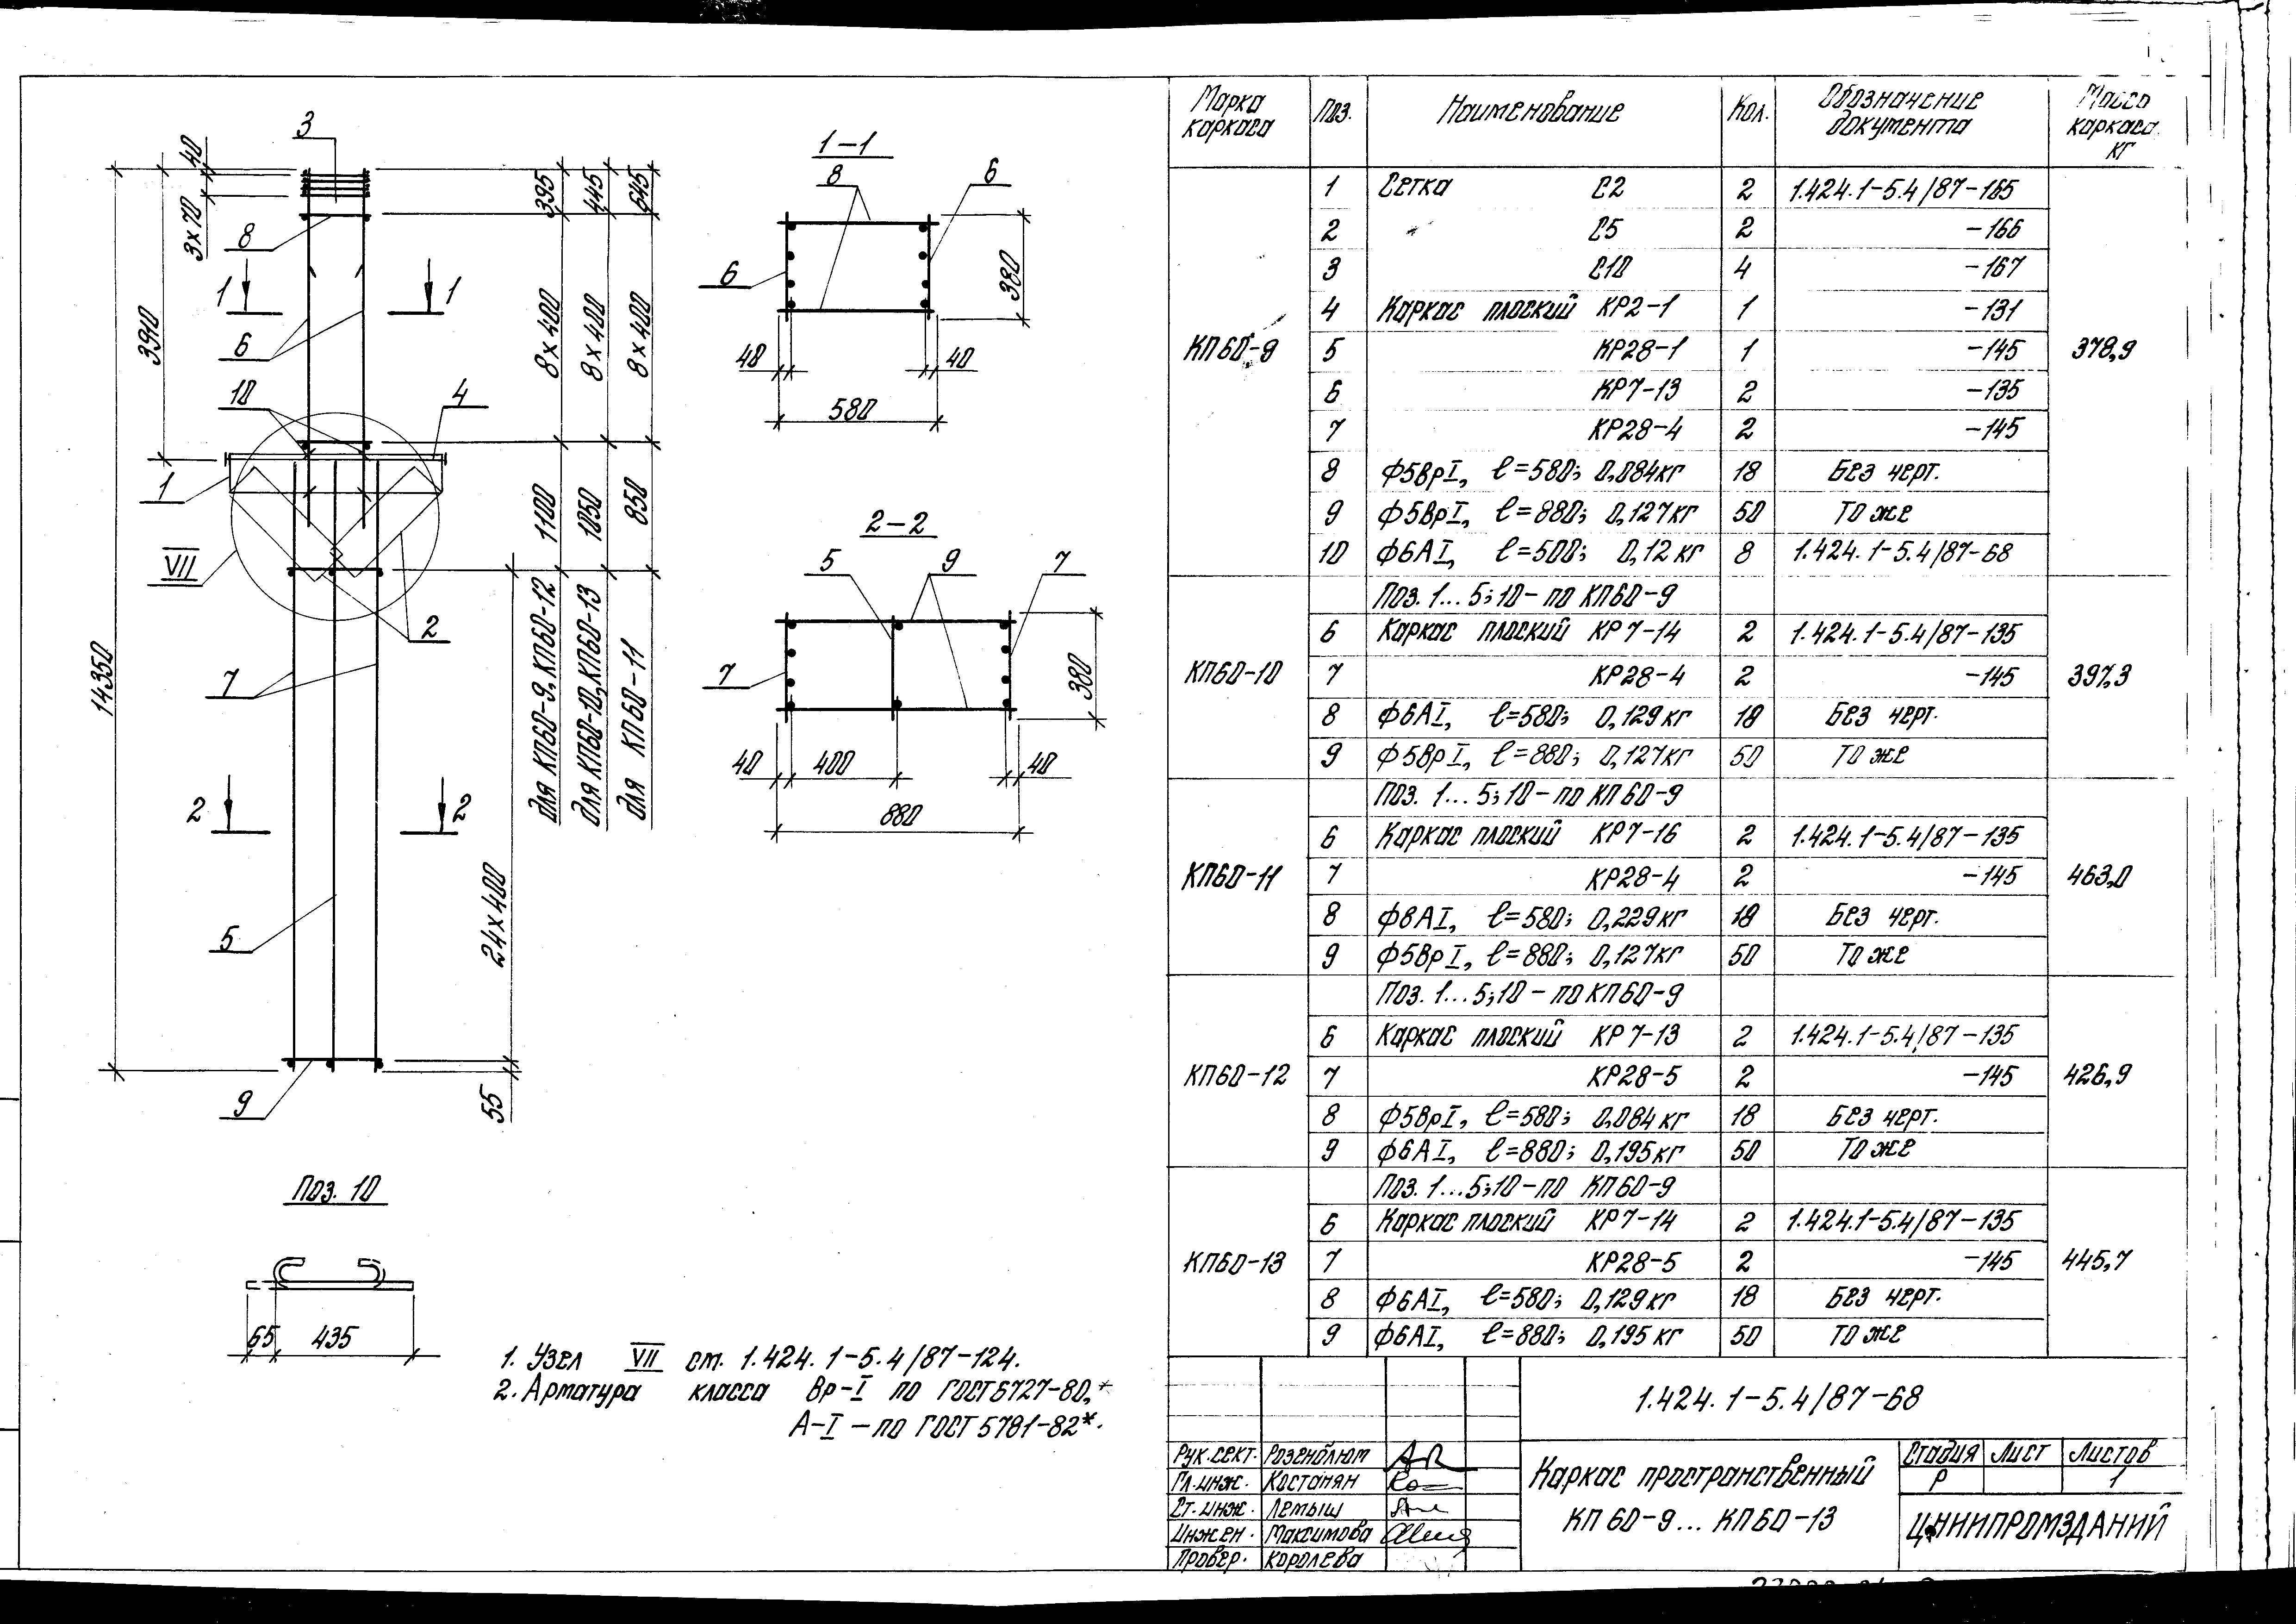 3
40
3x70
8
1
1
3910
6
10
4
1
VII
2
14350
7
2
2
5
9
24x400
55
395
445
645
8x400
8x400
8x400
1100
1050
850
для КП60-9, КП60-12
для КП60-10, КП60-13
для КП60-11
1-1
8
6
6
380
40
40
580
2-2
5
9
7
7
380
40
400
40
880
Поз. 10
65
435
1. Узел VII см. 1.424.1-5.4/87-124.
2. Арматура класса Вр-I по ГОСТ 6727-80,*
А-I – по ГОСТ 5781-82*.
Марка каркаса Поз. Наименование Кол. Обозначение документа Масса каркаса, кг
КП60-9 378,9
1 Сетка С2 2 1.424.1-5.4/87-165
2 " С5 2 -166
3 С10 4 -167
4 Каркас плоский КР2-1 1 -131
5 КР28-1 1 -145
6 КР7-13 2 -135
7 КР28-4 2 -145
8 Ф5ВрI, ℓ=580; 0,084кг 18 Без черт.
9 Ф5ВрI, ℓ=880; 0,127кг 50 То же
10 Ф6АI, ℓ=500; 0,12 кг 8 1.424.1-5.4/87-68
КП60-10 397,3
Поз. 1...5;10 - по КП60-9
6 Каркас плоский КР7-14 2 1.424.1-5.4/87-135
7 КР28-4 2 -145
8 Ф6АI, ℓ=580; 0,129кг 18 Без черт.
9 Ф5ВрI, ℓ=880; 0,127кг 50 То же
КП60-11 463,0
Поз. 1...5;10 - по КП60-9
6 Каркас плоский КР7-16 2 1.424.1-5.4/87-135
7 КР28-4 2 -145
8 Ф8АI, ℓ=580; 0,229кг 18 Без черт.
9 Ф5ВрI, ℓ=880; 0,127кг 50 То же
КП60-12 426,9
Поз. 1...5;10 - по КП60-9
6 Каркас плоский КР7-13 2 1.424.1-5.4/87-135
7 КР28-5 2 -145
8 Ф5ВрI, ℓ=580; 0,084кг 18 Без черт.
9 Ф6АI, ℓ=880; 0,195кг 50 То же
КП60-13 445,7
Поз. 1...5;10 - по КП60-9
6 Каркас плоский КР7-14 2 1.424.1-5.4/87-135
7 КР28-5 2 -145
8 Ф6АI, ℓ=580; 0,129кг 18 Без черт.
9 Ф6АI, ℓ=880; 0,195кг 50 То же
1.424.1-5.4/87-68
Рук.сект. Розенблюм
Гл.инж. Костанян
Ст.инж. Лемыш
Инжен. Максимова
Провер. Королева
Каркас пространственный
КП60-9...КП60-13
Стадия Лист Листов
Р 1
ЦНИИПРОМЗДАНИЙ